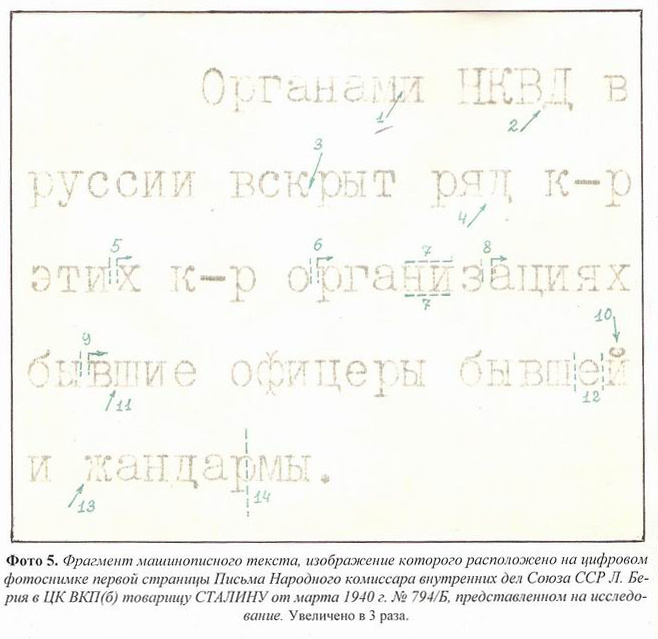 Органами НКВД в
1
2
3
руссии вскрыт ряд к-р
4
5 6 7 8
этих к-р организациях
7
9 10
бывшие офицеры бывшей
11 12
и жандармы.
13 14
Фото 5. Фрагмент машинописного текста, изображение которого расположено на цифровом
фотоснимке первой страницы Письма Народного комиссара внутренних дел Союза ССР Л. Бе-
рия в ЦК ВКП(б) товарищу СТАЛИНУ от марта 1940 г. № 794/Б, представленном на исследо-
вание. Увеличено в 3 раза.